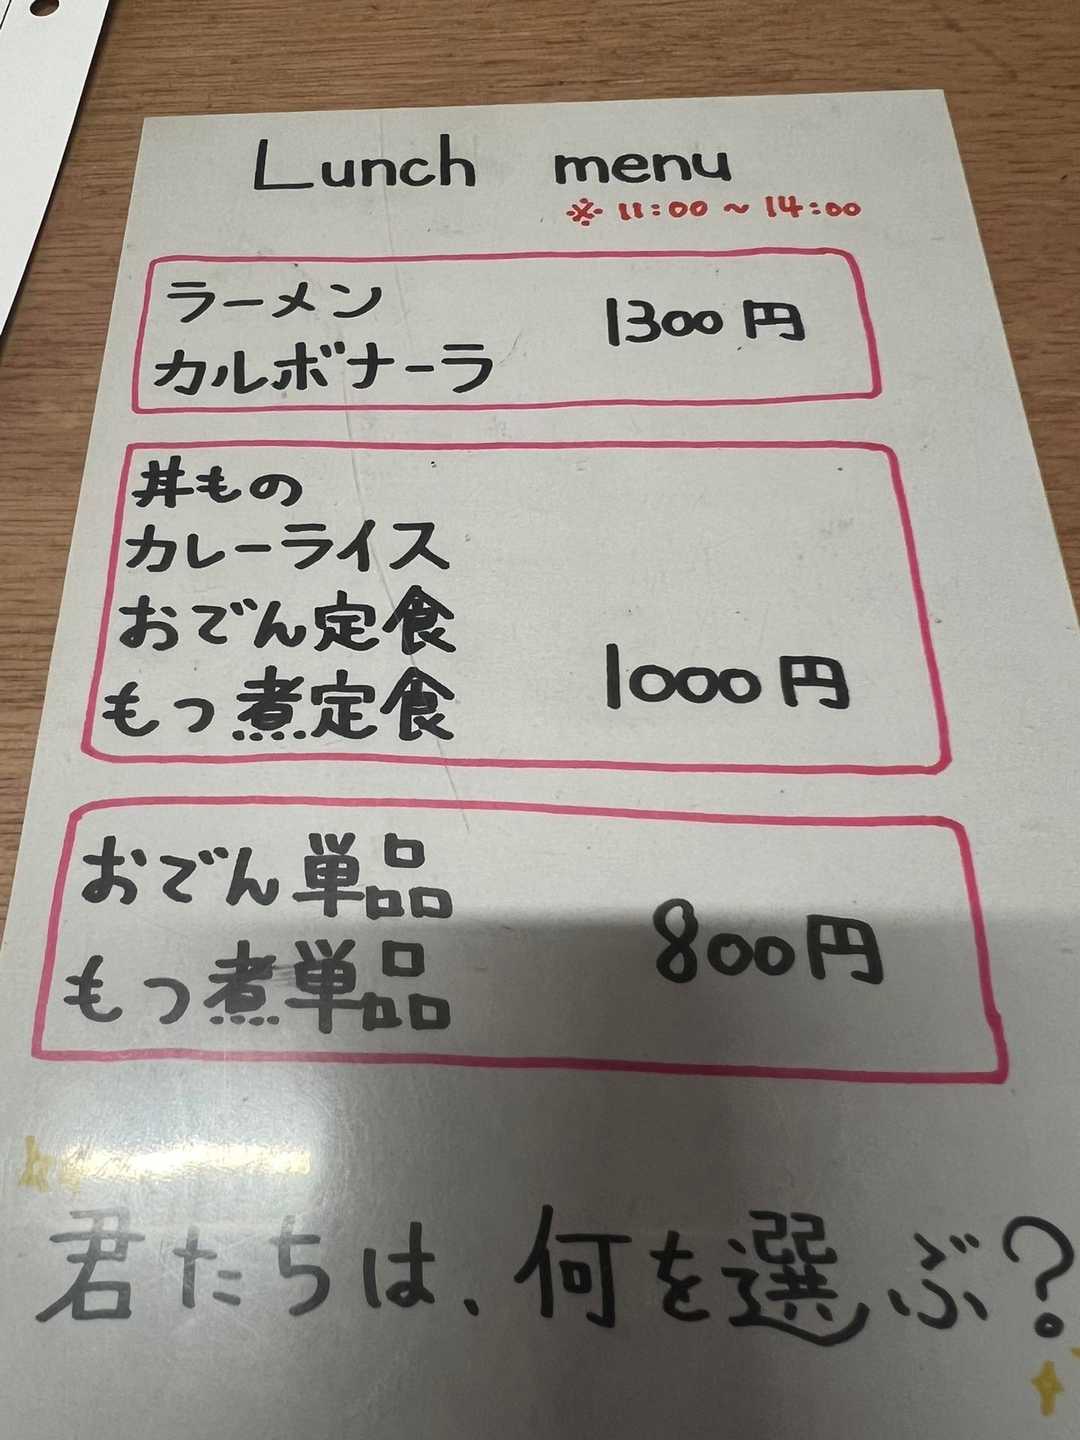 Lunch menu
※ 11:00～14:00
ラーメン
カルボナーラ
1300円
丼もの
カレーライス
おでん定食
もつ煮定食
1000円
おでん単品
もつ煮単品
800円
君たちは、何を選ぶ?